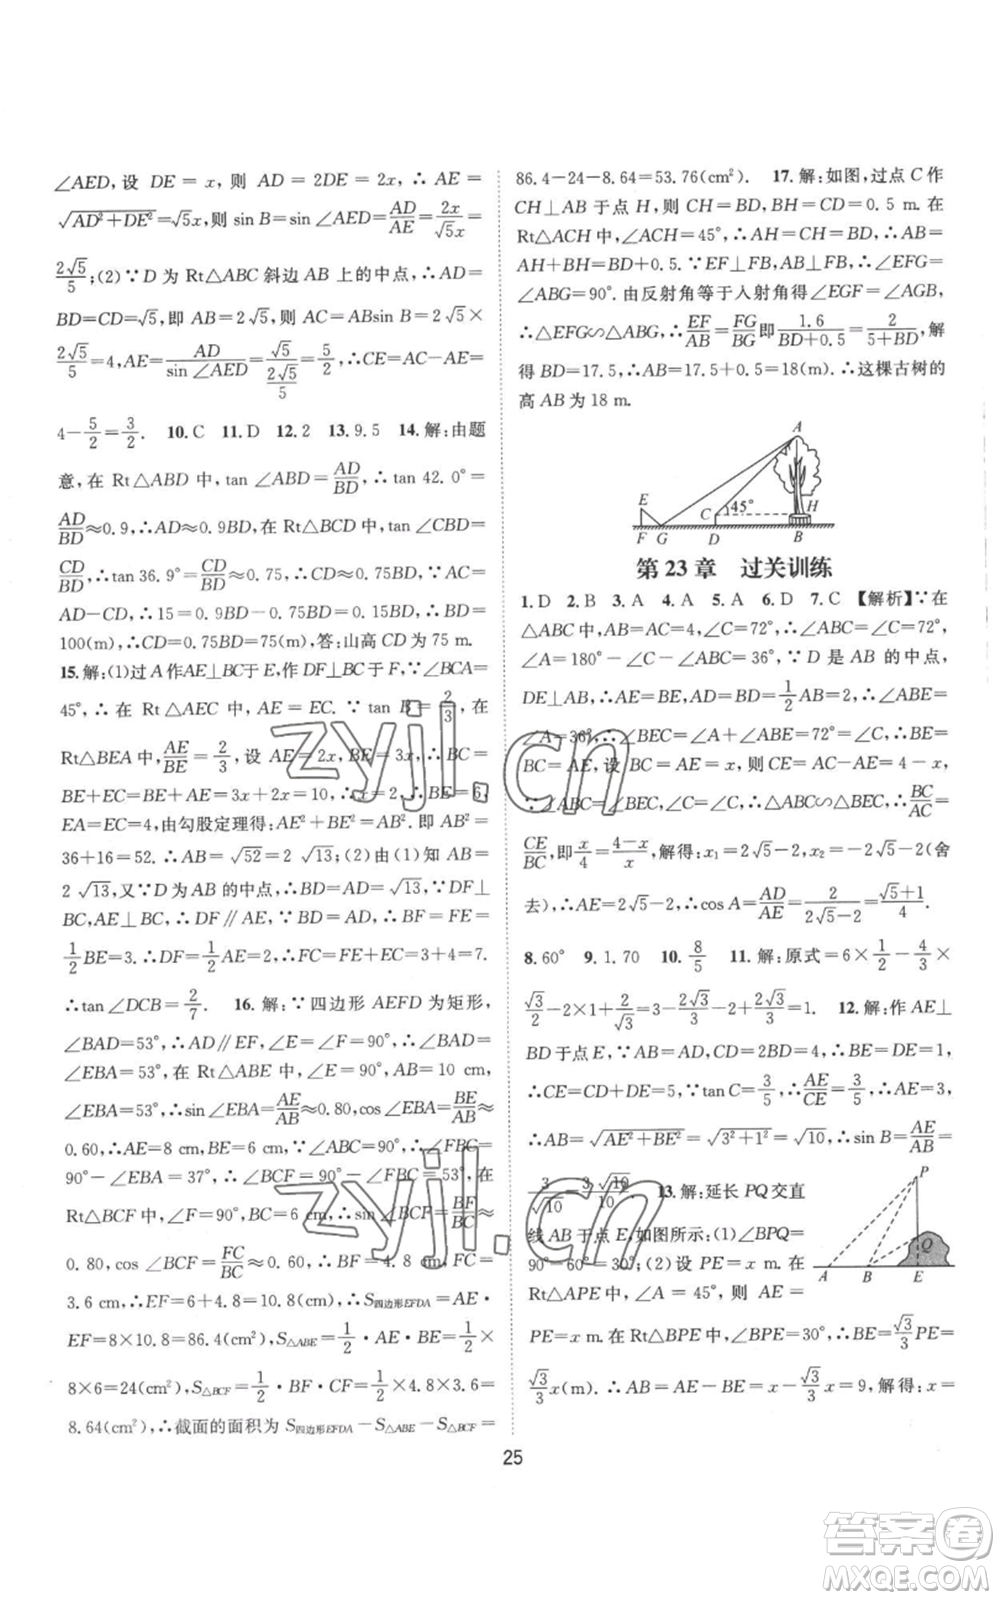 ∠AED,设 DE=x,则 AD=2DE=2x,∴AE=
√(AD²+DE²)=√5x,则 sin B=sin∠AED=AD/AE=2x/√5x=
2√5/5;(2)∵D 为 Rt△ABC 斜边 AB 上的中点,∴AD=
BD=CD=√5,即 AB=2√5,则 AC=ABsin B=2√5×
2√5/5=4,AE=AD/sin∠AED=√5/(2√5/5)=5/2,∴CE=AC-AE=
4-5/2=3/2. 10.C 11.D 12.2 13.9.5 14.解:由题
意,在 Rt△ABD 中,tan∠ABD=AD/BD,∴tan 42.0°=
AD/BD≈0.9,∴AD≈0.9BD,在 Rt△BCD 中,tan∠CBD=
CD/BD,∴tan 36.9°=CD/BD≈0.75,∴CD≈0.75BD,∵
AD-CD=15,∴0.9BD-0.75BD=15,∴BD=
100(m),∴CD=0.75BD=75(m),答:山高CD为75 m.
15.解:(1)过A作AE⊥BC于E,作DF⊥BC于F,∵∠BCA=
45°,∴在 Rt△AEC 中,AE=EC.∵tan B=2/3,在
Rt△BEA中,AE/BE=2/3,设 AE=2x,BE=3x,∴BC=
BE+EC=BE+AE=3x+2x=10,∴x=2,∴BE=6,
EA=EC=4,由勾股定理得:AE²+BE²=AB².即 AB²=
36+16=52.∴AB=√52=2√13;(2)由(1)知 AB=
2√13,又∵D为AB的中点,∴BD=AD=√13.∵DF⊥
BC,AE⊥BC,∴DF∥AE,∵BD=AD,∴BF=FE=
1/2BE=3.∴DF=1/2AE=2,∴CF=EC+FE=4+3=7.
∴tan∠DCB=2/7. 16.解:∵四边形AEFD为矩形,
∠BAD=53°,∴AD∥EF,∠E=∠F=90°,∴∠BAD=
∠EBA=53°,∴在 Rt△ABE 中,∠E=90°,AB=10 cm,
∠EBA=53°,∴sin∠EBA=AE/AB≈0.80,cos∠EBA=BE/AB≈
0.60,∴AE=8 cm,BE=6 cm,∵∠ABC=90°,∴∠FBC=
90°-∠EBA=37°,∴∠BCF=90°-∠FBC=53°,在
Rt△BCF中,∠F=90°,BC=6 cm,∴sin∠BCF=BF/BC≈
0.80,cos∠BCF=FC/BC≈0.60,∴BF=4.8 cm,FC=
3.6 cm,∴EF=6+4.8=10.8(cm),∴S四边形EFDA=AE·
EF=8×10.8=86.4(cm²),S△ABE=1/2·AE·BE=1/2×
8×6=24(cm²),S△BCF=1/2·BF·CF=1/2×4.8×3.6=
8.64(cm²),∴截面的面积为S四边形EFDA-S△ABE-S△BCF=
86.4-24-8.64=53.76(cm²). 17.解:如图,过点C作
CH⊥AB于点H,则CH=BD,BH=CD=0.5 m.在
Rt△ACH中,∠ACH=45°,∴AH=CH=BD,∴AB=
AH+BH=BD+0.5.∵EF⊥FB,AB⊥FB,∴∠EFG=
∠ABG=90°.由反射角等于入射角得∠EGF=∠AGB,
∴△EFG∽△ABG,∴EF/AB=FG/BG即1.6/(BD+0.5)=2/(5+BD),解
得BD=17.5,∴AB=17.5+0.5=18(m).∴这棵古树的
高AB为18 m.
A
E
C
45°
H
F G D B
第23章 过关训练
1.D 2.B 3.A 4.A 5.A 6.D 7.C【解析】∵在
△ABC中,AB=AC=4,∠C=72°,∴∠ABC=∠C=72°,
∠A=180°-∠ABC-∠C=36°,∵D是AB的中点,
DE⊥AB,∴AE=BE,AD=BD=1/2AB=2,∴∠ABE=
∠A=36°,∴∠BEC=∠A+∠ABE=72°=∠C,∴BE=
BC=AE,设BC=AE=x,则CE=AC-AE=4-x,
∵∠ABC=∠BEC,∠C=∠C,∴△ABC∽△BEC,∴BC/AC=
CE/BC,即x/4=(4-x)/x,解得:x₁=2√5-2,x₂=-2√5-2(舍
去),∴AE=2√5-2,∴cos A=AD/AE=2/(2√5-2)=(√5+1)/4.
8.60° 9.1.70 10.8/5 11.解:原式=6×1/2-4/3×
√3/2-2×1+2/√3=3-2√3/3-2+2√3/3=1. 12.解:作AE⊥
BD于点E,∵AB=AD,CD=2BD=4,∴BE=DE=1,
∴CE=CD+DE=5.∵tan C=3/5,∴AE/CE=3/5,∴AE=3,
∴AB=√(AE²+BE²)=√(3²+1²)=√10,∴sin B=AE/AB=
3/√10=3√10/10. 13.解:延长PQ交直
线AB于点E,如图所示:(1)∠BPQ=
90°-60°=30°;(2)设 PE=x m.在
Rt△APE中,∠A=45°,则 AE=
PE=x m.在Rt△BPE中,∠BPE=30°,∴BE=√3/3PE=
√3/3x(m).∵AB=AE-BE=x-√3/3x=9,解得:x=
P
Q
A B E
25
zyjl.cn
zyjl.cn
答案卷
MXQE.COM